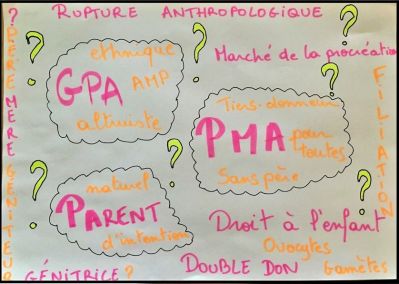 RUPTURE ANTHROPOLOGIQUE
?
PÈRE MÈRE GÉNITEUR
ethnique
GPA AMP
altruiste
Marché de la procréation
FILIATION
Tiers-donneur
PMA pour
toutes
Sans père
naturel
PARENT
d'intention
Droit à l'enfant
Ovocytes
GÉNITRICE ?
DOUBLE DON
Gamètes